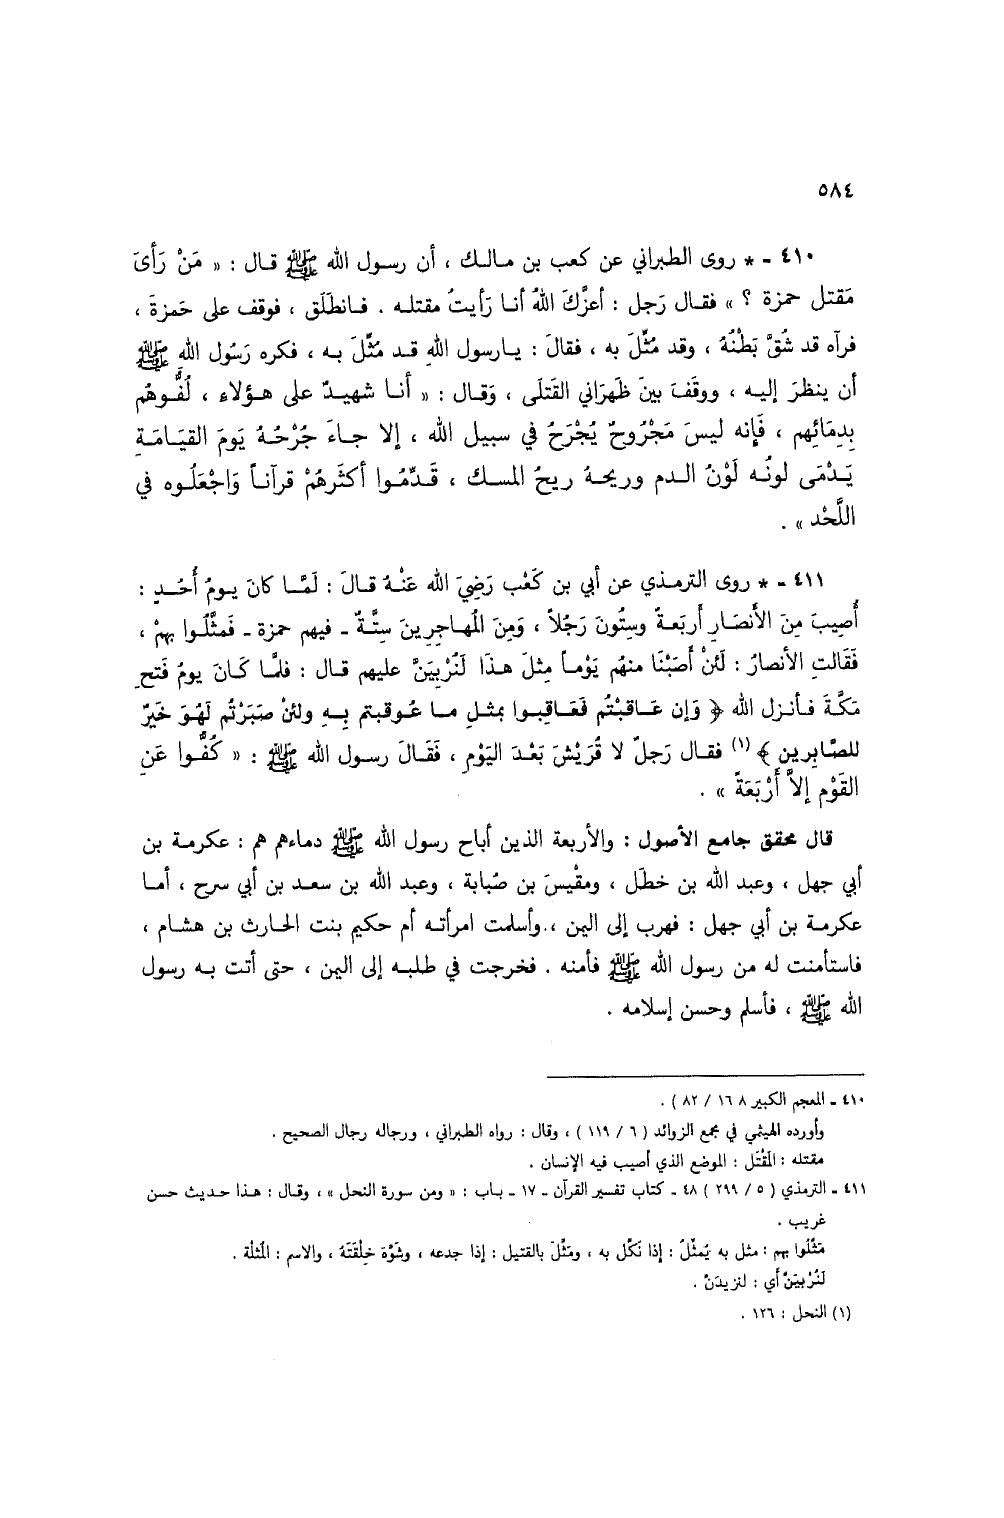 ٥٨٤
٤١٠ - * روى الطبراني عن كعب بن مالك ، أن رسول الله ﷺ قال : « مَنْ رَأىَ
مَقتل حمزة ؟ » فقال رَجل : أعزَّكَ اللهُ أنا رَأيتُ مقتله . فانطَلَق ، فوقف على حَمزةَ ،
فرآه قد شُقَّ بَطْنُهُ ، وقد مُثِّلَ به ، فقالَ : يارسول اللهِ قد مُثِّلَ به ، فكره رَسُول اللهِ ﷺ
أن ينظرَ إليه ، ووقَفَ بينَ ظَهرَاني القَتلَى ، وَقال : « أنا شهيدٌ على هؤلاء ، لُفُّوهُم
بِدِمَائِهم ، فَإنه ليسَ مَجْرُوحٌ يُجْرَحُ في سبيل الله ، إلا جاءَ جُرْحُهُ يَومَ القيَامَةِ
يَدْمَى لونُه لَوْنُ الدم وريحهُ ريحُ المسك ، قَدِّمُوا أكثَرهُمْ قرآناً وَاجْعَلُوه في
اللَّحْد » .
٤١١ - * روى الترمذي عن أبي بن كَعْب رَضِيَ الله عَنْهُ قالَ : لَمَّا كانَ يومُ أُحُدٍ :
أُصِيبَ مِنَ الأَنصَارِ أَربَعةٌ وسِتُونَ رَجُلاً ، وَمِنَ المُهاجِرِينَ سِتَّةٌ - فيهم حمزة - فَمثَّلُوا بهمْ ،
فَقَالتِ الأنصارُ : لَئنْ أصَبْنَا منهُم يَوْماً مِثلَ هذَا لَنُرْبِيَنَّ عليهم قال : فلمَّا كَانَ يومُ فَتحِ
مَكَّةَ فأنزل الله ﴿ وَإن عاقبْتُم فَعَاقِبوا بمثلِ ما عُوقبتم بِهِ ولئنْ صَبَرْتُم لَهُوَ خَيرٌ
للصَّابِرين ﴾ (١) فقال رَجلٌ لا قُرَيْشَ بَعْدَ اليَوْمِ ، فَقَالَ رسول الله ﷺ : « كُفُّوا عَنِ
القَوْم إلاَّ أَرْبَعَةً » .
قال محقق جامع الأصول : والأربعة الذين أباح رسول الله ﷺ دماءهم هم : عكرمة بن
أبي جهل ، وعبد الله بن خطَل ، ومقْيسَ بن صُبابة ، وعبد الله بن سعد بن أبي سرح ، أما
عكرمة بن أبي جهل : فهرب إلى اليمن ، وأسلمت امرأته أم حكيم بنت الحارث بن هشام ،
فاستأمنت له من رسول الله ﷺ فأمنه . فخرجت في طلبه إلى اليمن ، حتى أتت به رسول
الله ﷺ ، فأسلم وحسن إسلامه .
٤١٠ - المعجم الكبير ٨ ١٦ / ٨٢ ) .
وأورده الهيثمي في مجمع الزوائد ( ٦ / ١١٩ ) ، وقال : رواه الطبراني ، ورجاله رجال الصحيح .
مقتله : المَقْتَل : الموضع الذي أصيب فيه الإنسان .
٤١١ - الترمذي ( ٥ / ٢٩٩ ) ٤٨ - كتاب تفسير القرآن - ١٧ - باب : « ومن سورة النحل » ، وقال : هذا حديث حسن
غريب .
مَثَّلُوا بهم : مثل به يُمثّلُ : إذا نَكَّل به ، ومَثَّلَ بالقتيل : إذا جدعه ، وشَوَّهَ خِلْقَتَهُ ، والاسم : المُثلَة .
لَنُرْبيَنَّ أي : لنزيدَنْ .
(١) النحل : ١٢٦ .